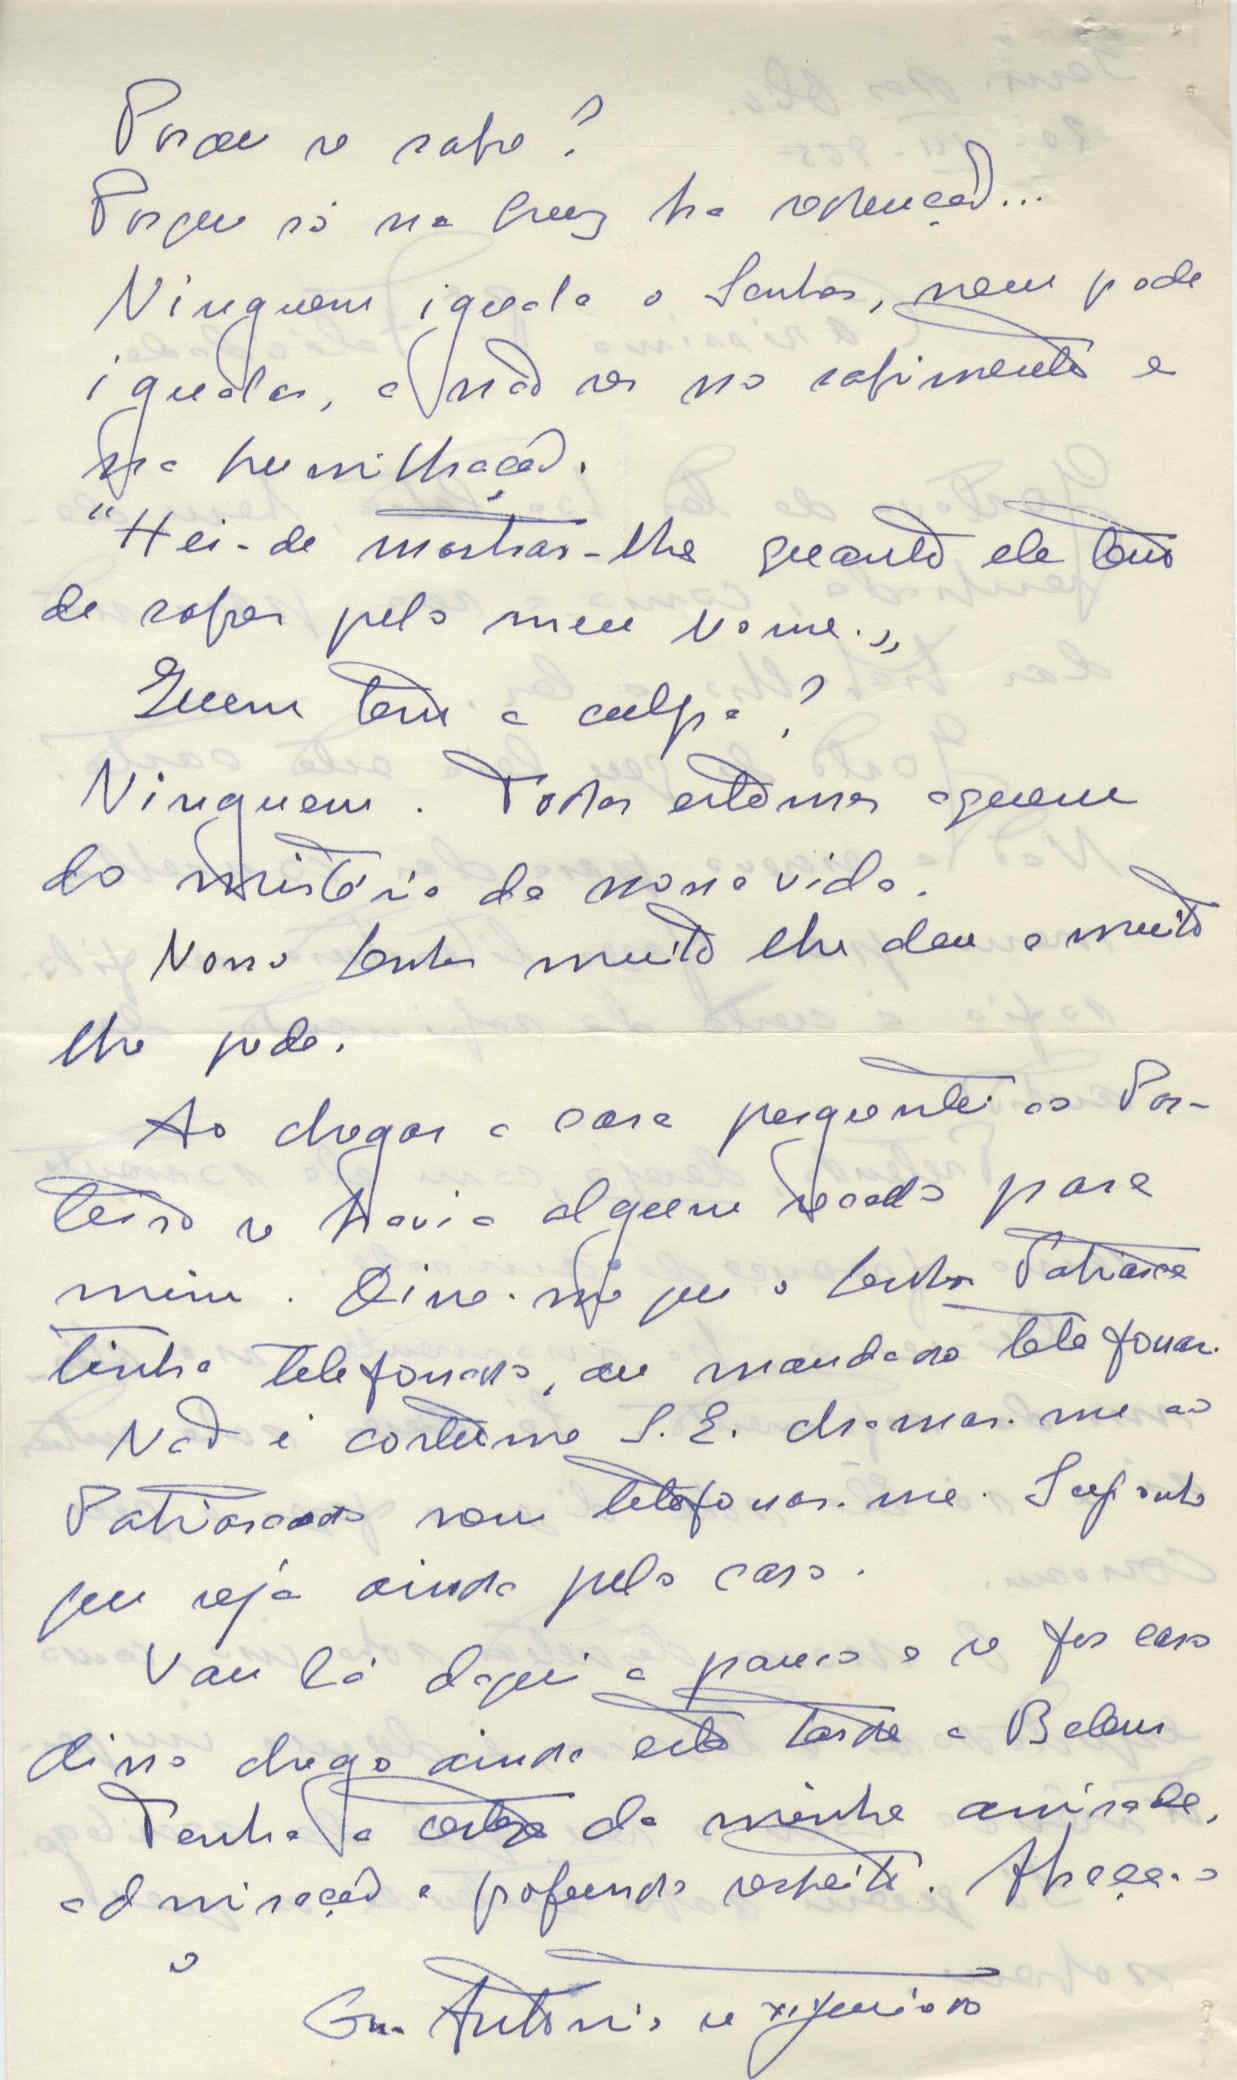 Porque se sofre?
Porque só na Cruz ha redenção...
Ninguem iguala o Senhor, nem pode
igualar, a não ser no sofrimento e
na humilhação.
"Hei-de mostrar-lhe quanto ele tem
de sofrer pelo meu Nome.„
Quem tem a culpa?
Ninguem. Todos estamos aquem
do mistério da nossa vida.
Nosso Senhor muito lhe deu e muito
lhe pede.
Ao chegar a casa perguntei ao Por-
teiro se havia algum recado para
mim. Disse-me que o Senhor Patriarca
tinha telefonado, ou mandado telefonar.
Não é costume S. E. chamar-me ao
Patriarcado nem telefonar-me. Suponho
que seja ainda pelo caso.
Vou lá daqui a pouco e se for caso
disso chego ainda esta tarde a Belem
Tenha a certeza da minha amizade,
admiração e profundo respeito. Abraça-o
o
Con. António